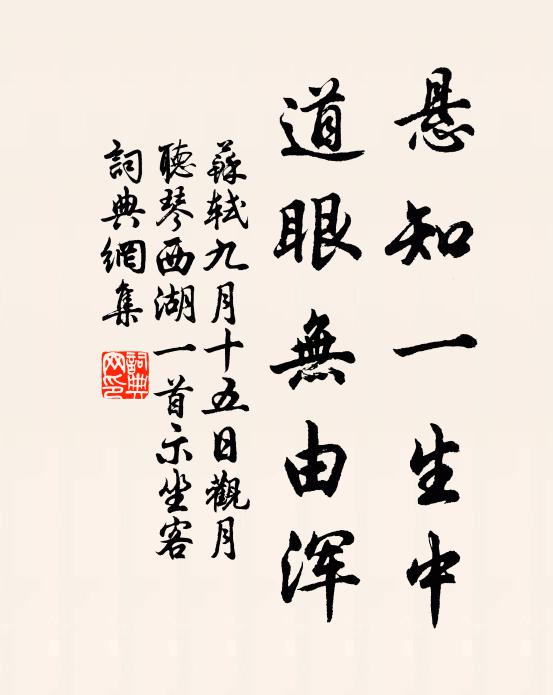 悬知一生中
道眼無由浑
蘇軾九月十五日觀月
聽琴西湖一首示坐客
詞典網集
詞典网印